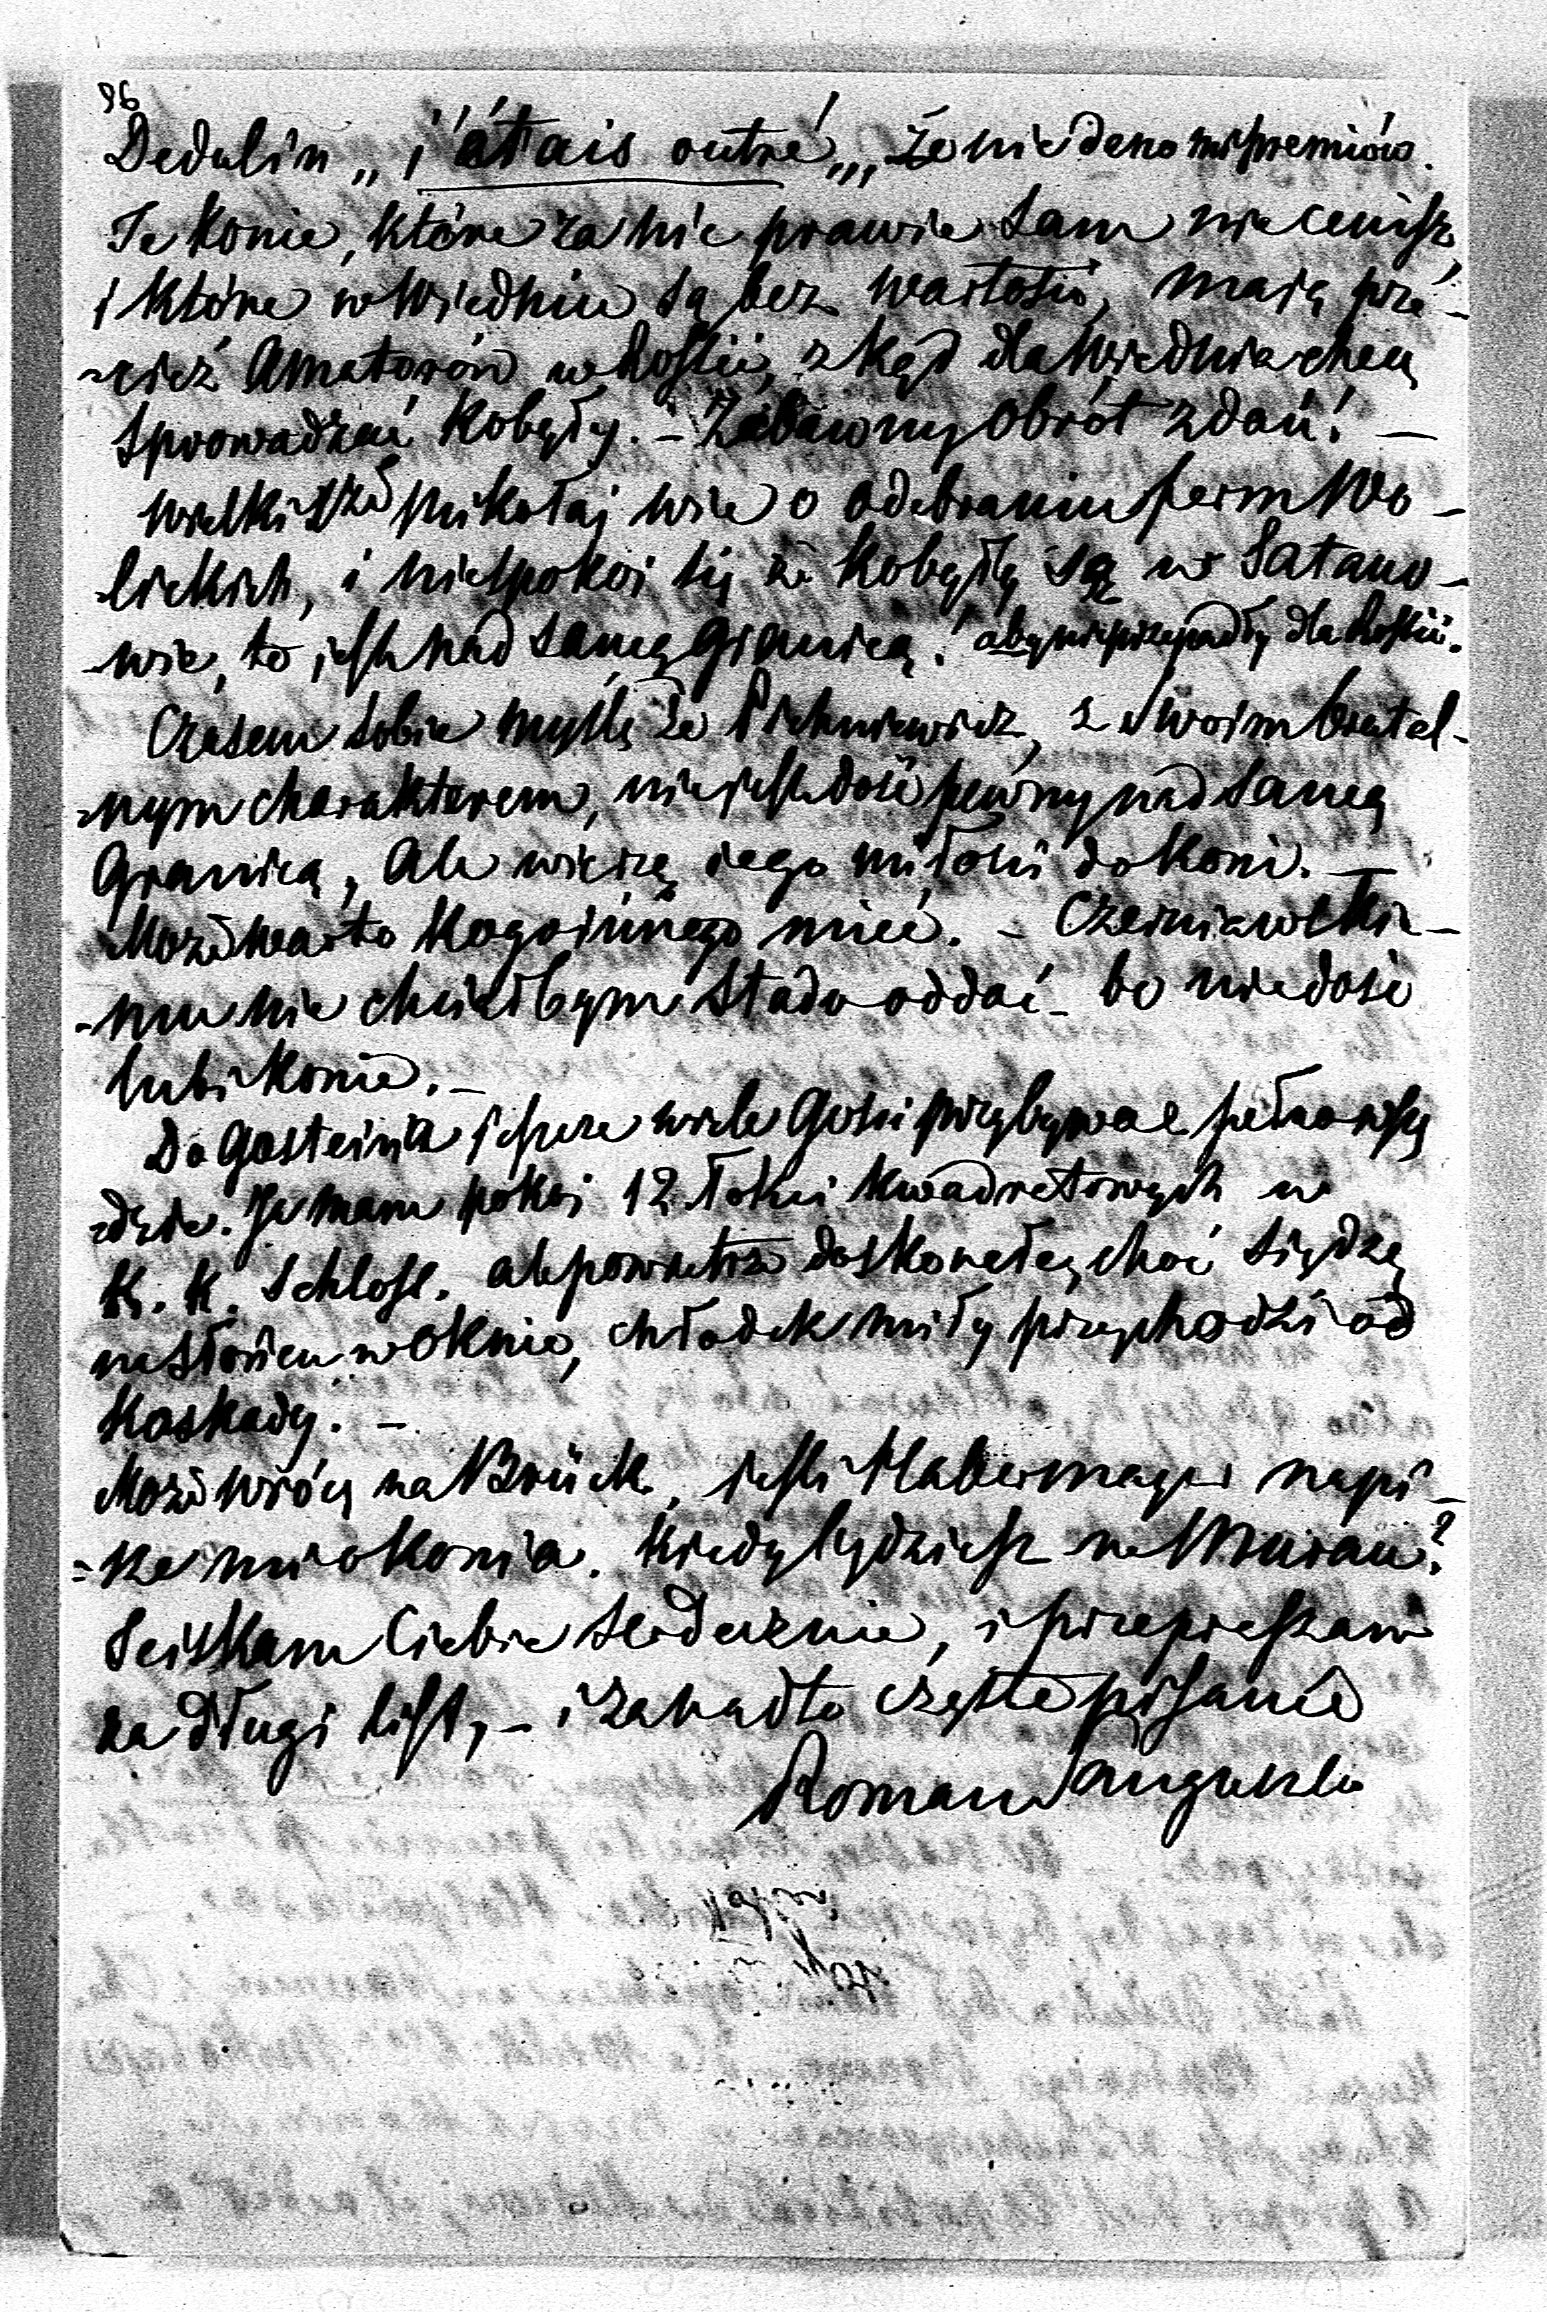 96
Dedulin „j'étais outré„, że nie dano mi premiów.
Te konie, które za nic prawie sam nie cenisz,
i które w Wiedniu są bez wartości, mają prze-
-cież Amatorów w Rossii, zkąd dla Wiednia chcą
sprowadzać Kobyły. – Zabawny obrót zdań! –
Wielki Xże Mikołaj wie o odebraniu ferm Wo-
lickich, i niespokoi się że Kobyły są w Satano-
-wie, to jest nad samą Granicą! aby nie przepadły dla Rossii.
Czasem sobie myślę że Pichniewicz, z swoim brutal-
-nym charakterem, nie jest dość pewny nad samą
Granicą, Ale wierzę jego miłości do Koni. –
Może warto Kogo innego mieć. – Czerniawskie-
-mu nie chciałbym Stada oddać – bo nie dość
lubi Konie. –
Do Gasteina jeszcze wiele Gości przybywa e pełno wszę
-dzie. Ja mam pokoj 12 łokci kwadratowych w
K. K. Schloss. ale powietrze doskonałe, choć siędzę
na słońcu w oknie, chłodek miły przychodzi od
Kaskady. –
Może wrócę na Brück, jeśli Habermayer napi-
-sze mi o Konia. Kiedy będziesz na Murau?
Sciskam Ciebie Serdecznie, i przepraszam
za długi list, – i zanadto częste pisanie
Roman Sanguszko